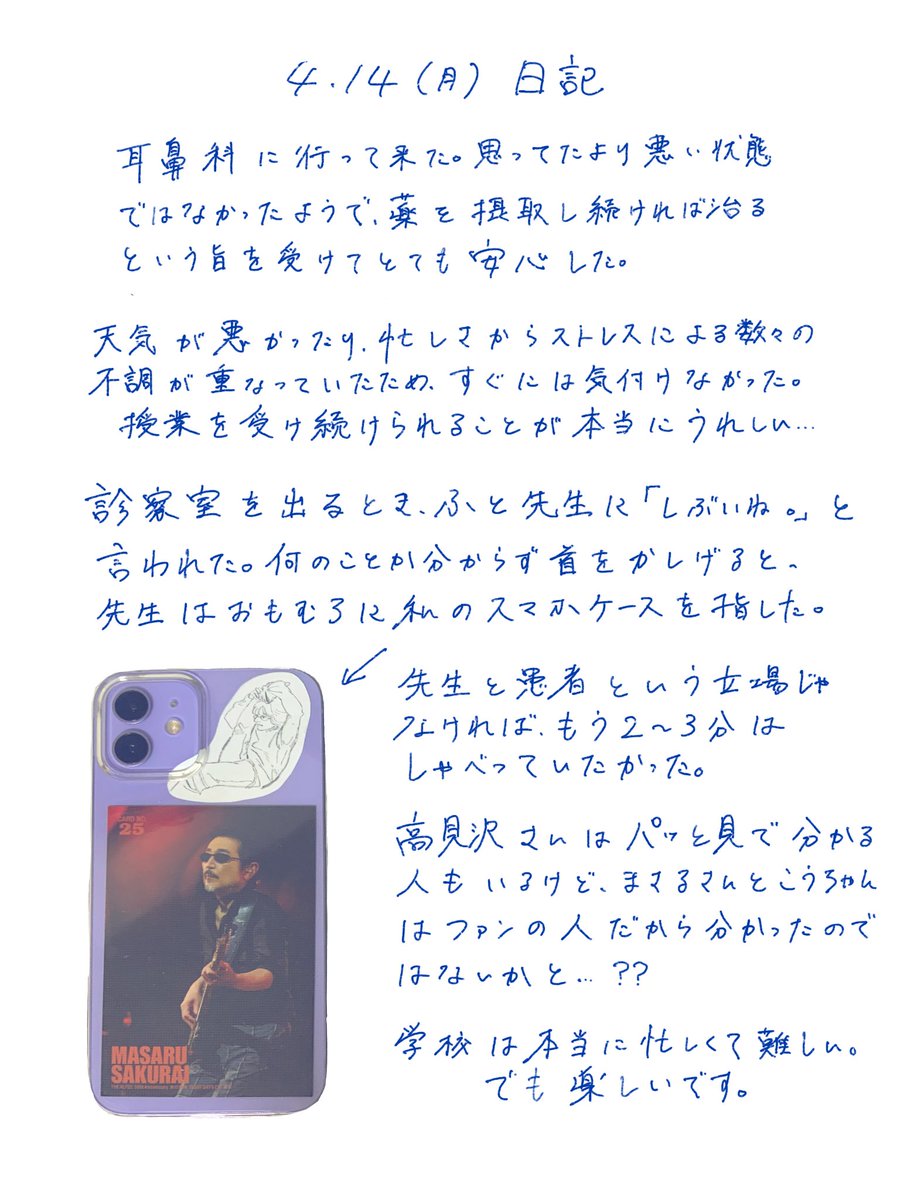 4.14(月) 日記
耳鼻科に行って来た。思ってたより悪い状態
ではなかったようで、薬を摂取し続ければ治る
という旨を受けてとても安心した。
天気が悪かったり、忙しさからストレスによる数々の
不調が重なっていたため、すぐには気付けなかった。
授業を受け続けられることが本当にうれしい…
診察室を出るとき、ふと先生に「しぶいね。」と
言われた。何のことか分からず首をかしげると、
先生はおもむろに私のスマホケースを指した。
先生と患者という立場じゃ
なければ、もう2〜3分は
しゃべっていたかった。
高見沢さんはパッと見で分かる
人もいるけど、まさるさんとこうちゃん
はファンの人だから分かったので
はないかと…??
学校は本当に忙しくて難しい。
でも楽しいです。
CARD NO.
25
MASARU
SAKURAI